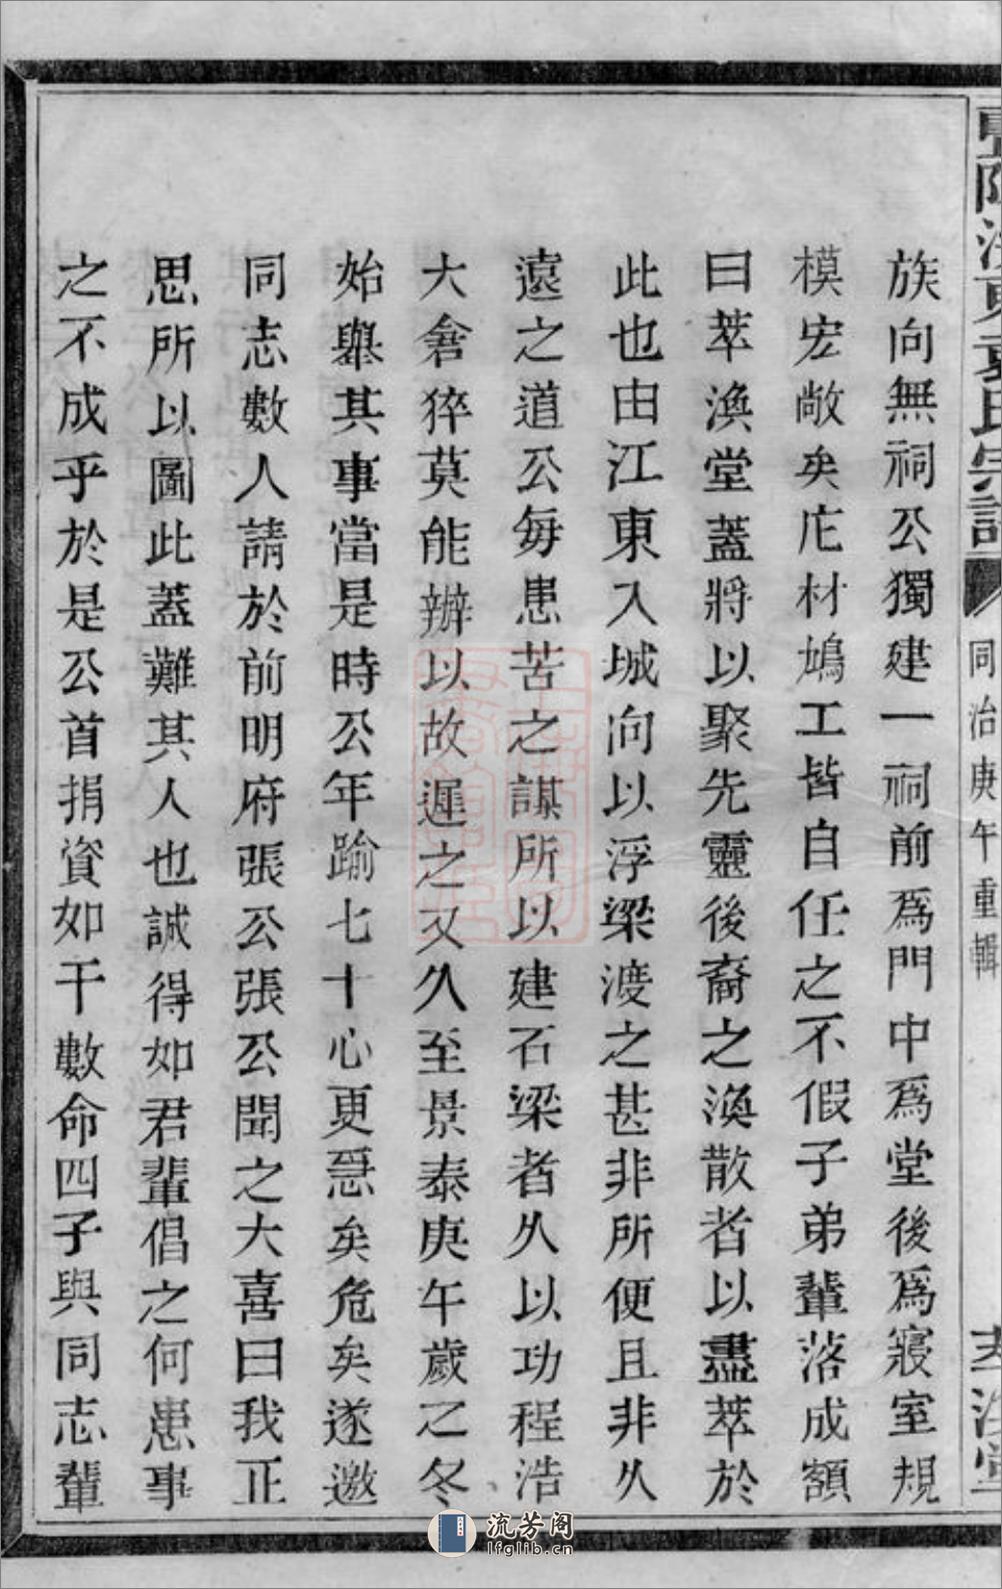 族向無祠公獨建一祠前爲門中爲堂後爲寢室規
模宏敞矣庀材鳩工皆自任之不假子弟輩落成額
曰萃渙堂蓋將以聚先靈後裔之渙散者以盡萃於
此也由江東入城向以浮梁渡之甚非所便且非久
遠之道公每患苦之謀所以建石梁者久以功程浩
大倉猝莫能辦以故遲之又久至景泰庚午歲之冬
始舉其事當是時公年踰七十心更急矣危矣遂邀
同志數人請於前明府張公張公聞之大喜曰我正
思所以圖此蓋難其人也誠得如君輩倡之何患事
之不成乎於是公首捐資如干數命四子與同志輩
同治庚午重輯
流芳阁
lfglib.cn